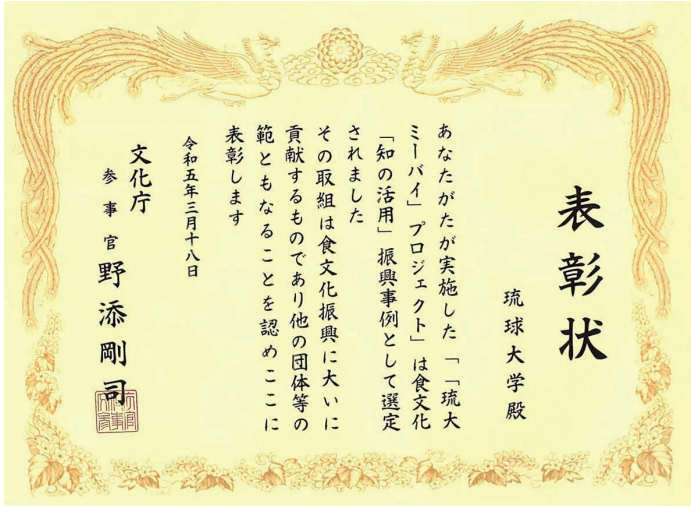 表彰状
琉球大学殿
あなたがたが実施した「「琉大
ミーバイ」プロジェクト」は食文化
「知の活用」振興事例として選定
されました
その取組は食文化振興に大いに
貢献するものであり他の団体等の
範ともなることを認めここに
表彰します
令和五年三月十八日
文化庁
参事官 野添剛司